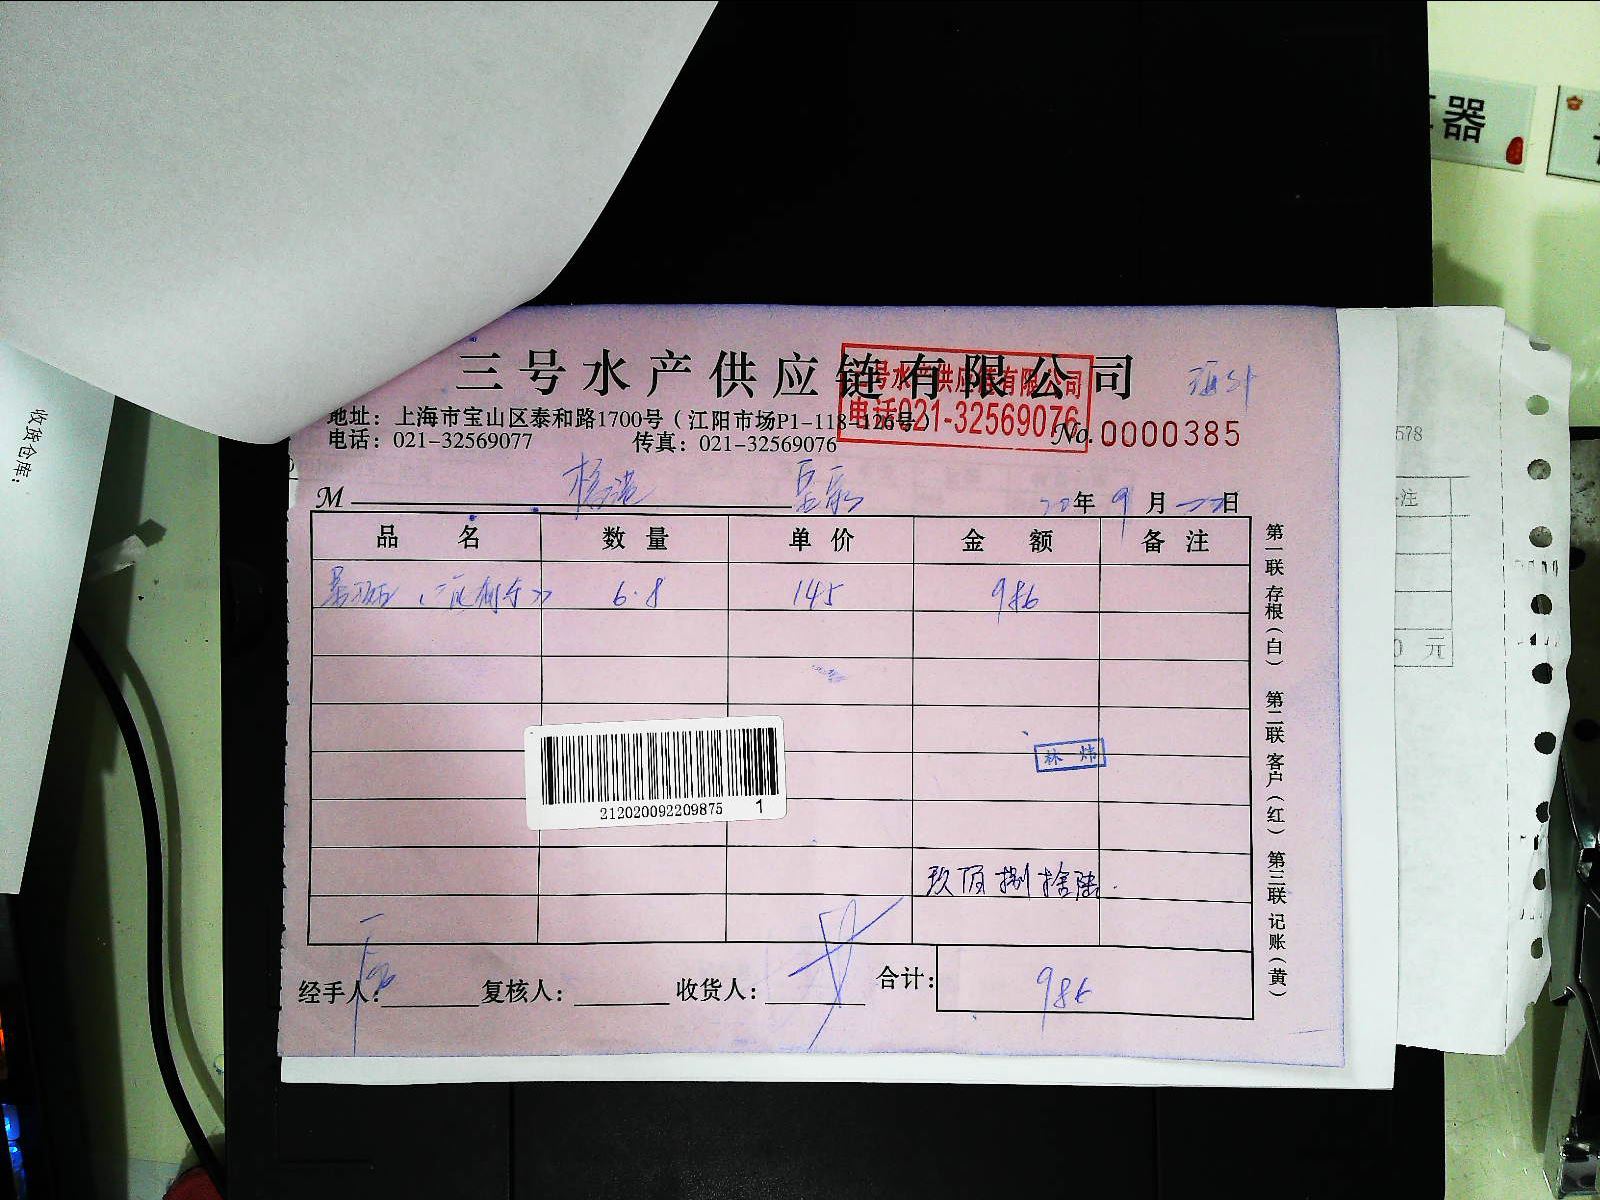 器
收货仓库：
三号水产供应链有限公司
三号水产供应链有限公司
电话021-32569076
地址：上海市宝山区泰和路1700号（江阳市场P1-118-126号）
电话：021-32569077 传真：021-32569076
No.0000385
578
M
20年9月22日
品名 数量 单价 金额 备注
6.8 145 986
注
元
林炜
212020092209875 1
玖佰捌拾陆
经手人： 复核人： 收货人： 合计：986
第一联存根（白） 第二联客户（红） 第三联记账（黄）